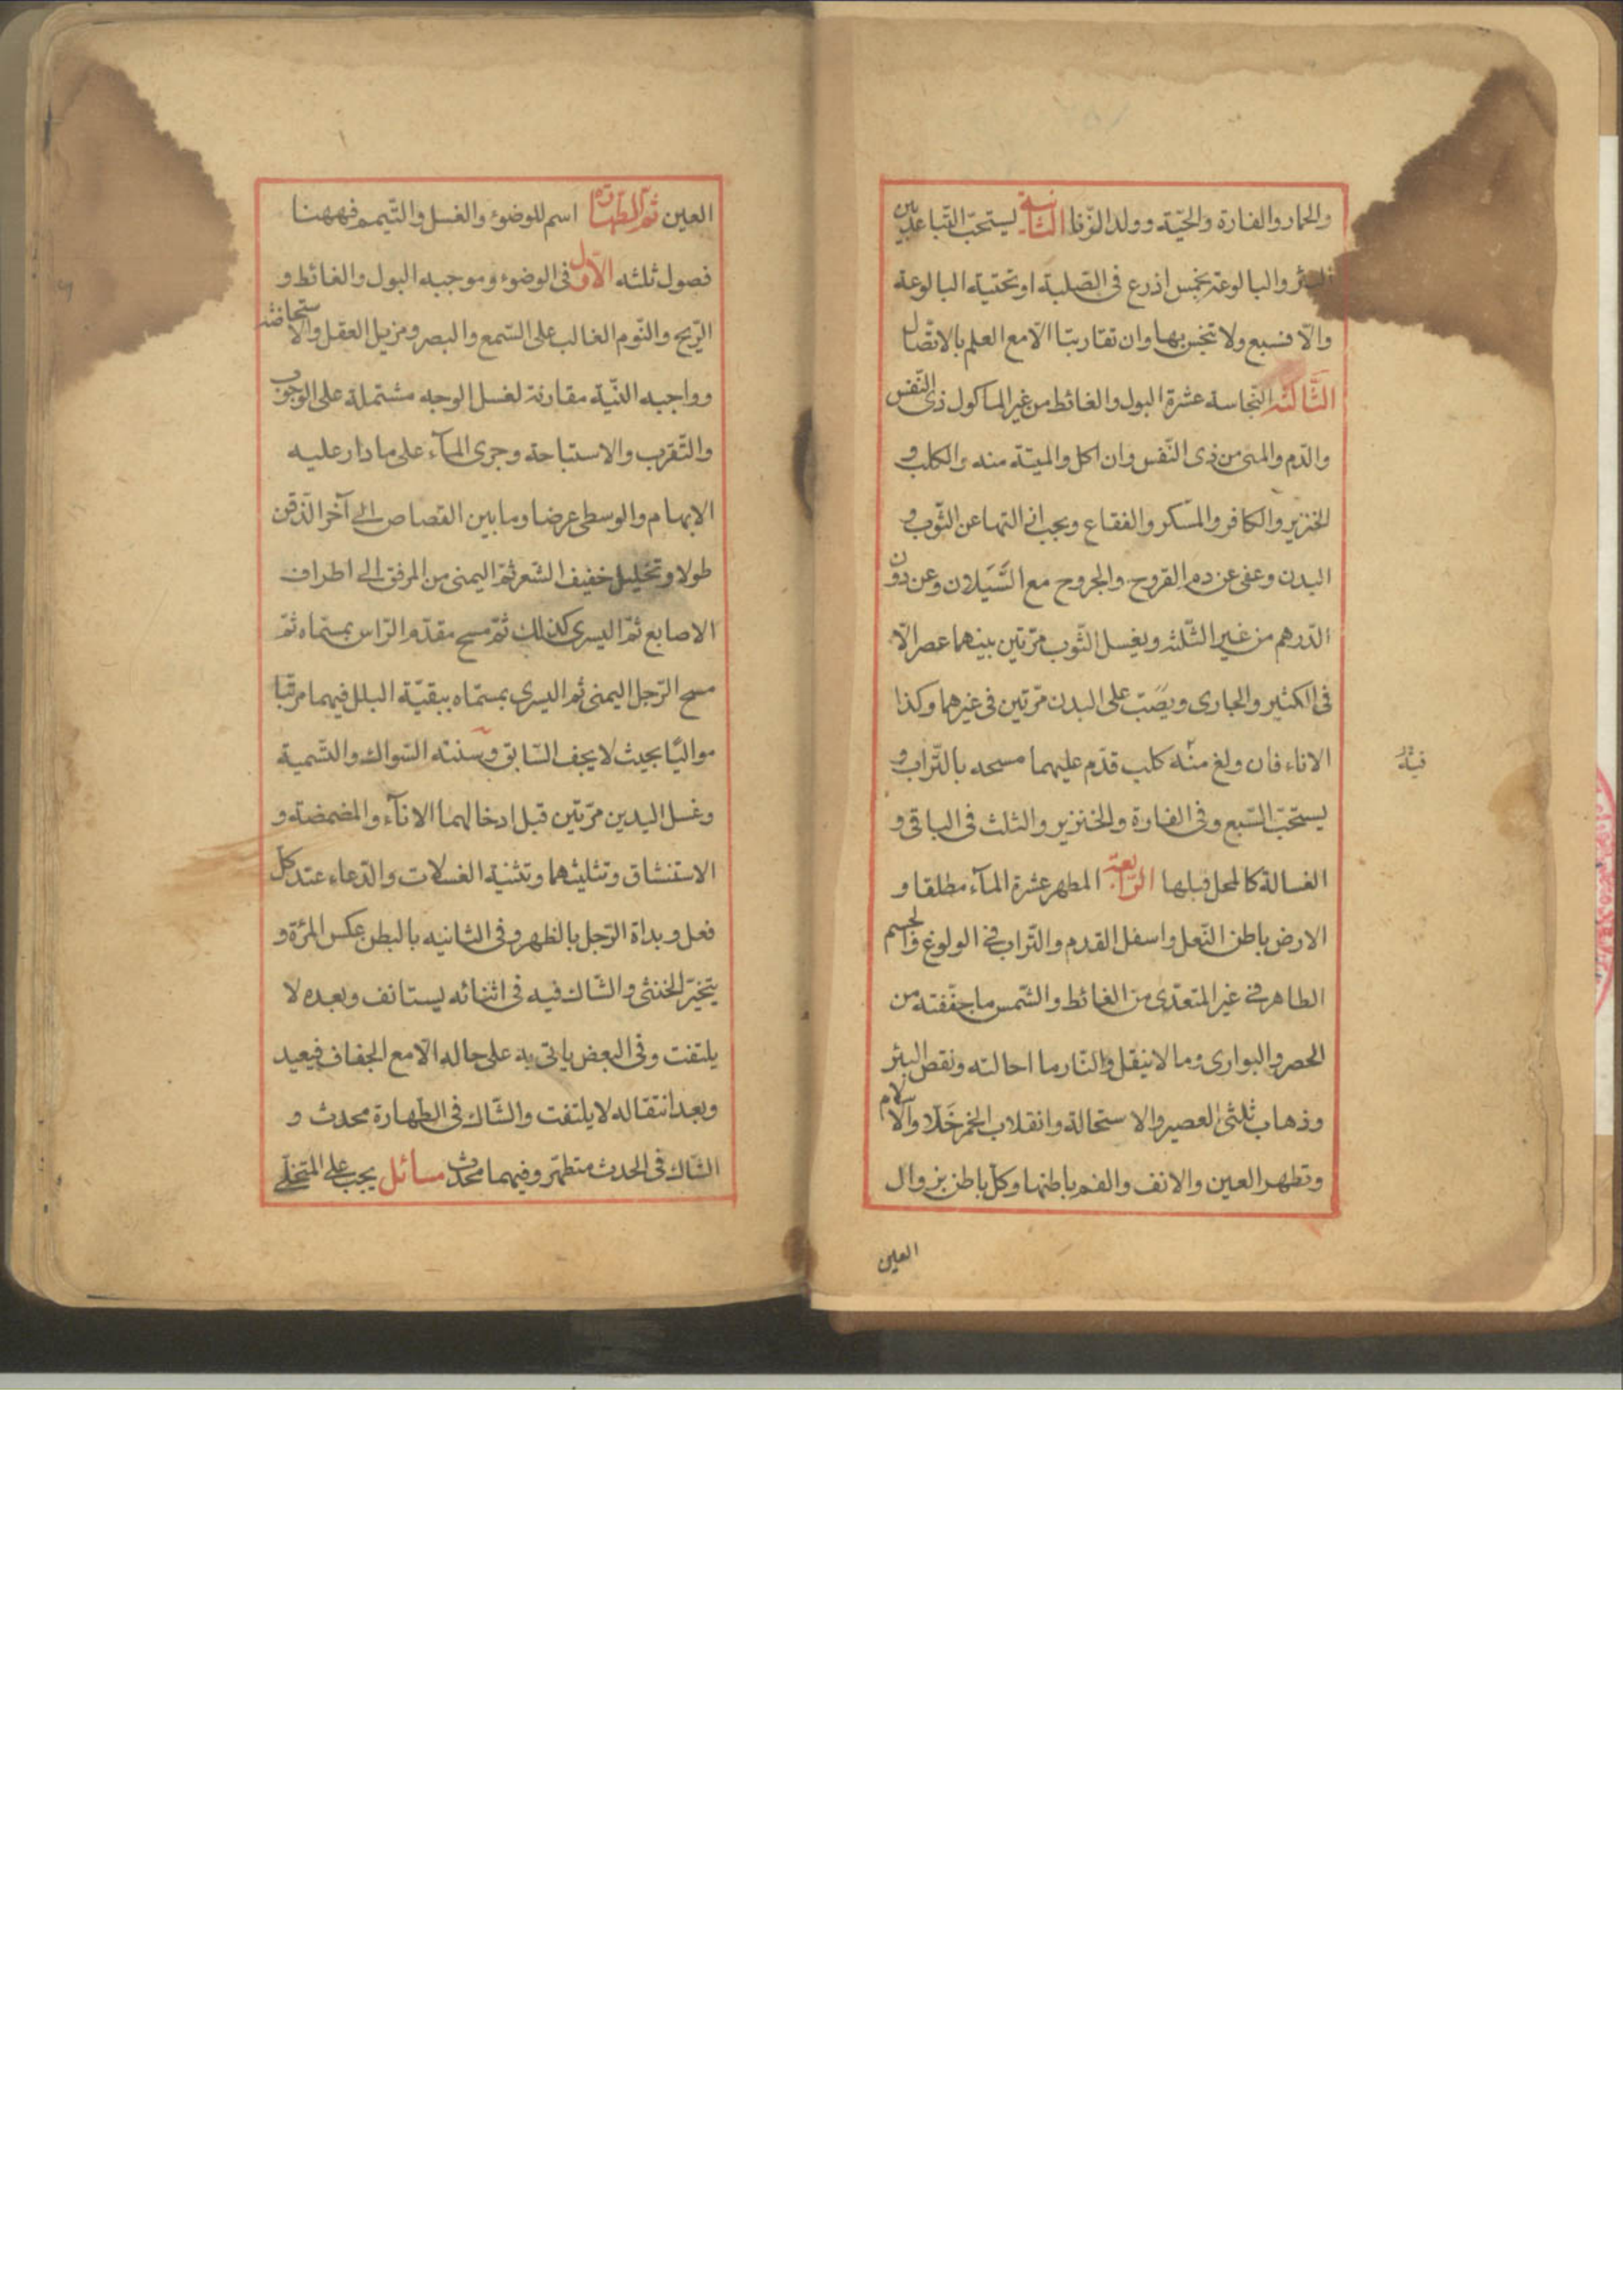 والحمار والفارة والحيّة وولد الزّنا الثّانية يستحبّ التّباعد بين
البئر والبالوعة بخمس اذرع فى الصّلبة او تحتية البالوعة
والّا فسبع ولا تنجس بها وان تقاربتا الّا مع العلم بالاتّصال
الثّالثة النّجاسة عشرة البول والغائط من غير الماكول ذى النّفس
والدّم والمنى من ذى النّفس وان اكل والميتة منه والكلب و
الخنزير والكافر والمسكر والفقاع ويجب ازالتها عن الثّوب و
البدن وعفى عن دم القروح والجروح مع السَّيَلان وعن دون
الدّرهم من غير الثّلثه ويغسل الثّوب مرّتين بينهما عصر الّا
فى الكثير والجارى ويصَبّ على البدن مرّتين فى غيرهما وكذا
الاناء فان ولغ منه كلب قدّم عليهما مسحه بالتّراب و
فيه
يستحبّ السّبع وفى الفارة والخنزير والثلث فى الباقى و
الغسالة كالمحل قبلها الرّابعة المطهر عشرة المآء مطلقا و
الارض باطن النّعل واسفل القدم والتّراب فى الولوغ والجسم
الطاهر فى غير المتعدّى من الغائط والشّمس ما جفّفته من
الحصر والبوارى وما لا ينقل والنّار ما احالته ونقص البئر
وذهاب ثلثى العصير والاستحالة وانقلاب الخمر خَلّا والاسلام
وتطهر العين والانف والفم باطنها وكلّ باطن بزوال
العين
العين ثمّ الطهارة اسم للوضوء والغسل والتّيمم فههنا
فصول ثلثه الاوّل فى الوضوء وموجبه البول والغائط و
الرّيح والنّوم الغالب على السّمع والبصر ومزيل العقل والاستحاضة
وواجبه النّية مقارنة لغسل الوجه مشتملة على الوجوب
والتّقرب والاستباحة وجرى المآء على ما دار عليه
الابهام والوسطى عرضا وما بين القصاص الى آخر الذّقن
طولا وتخليل خفيف الشعر ثمّ اليمنى من المرفق الى اطراف
الاصابع ثمّ اليسرى كذلك ثمّ مسح مقدّم الرّاس بمسمّاه ثمّ
مسح الرّجل اليمنى ثم اليسرى بمسمّاه ببقيّة البلل فيهما مرتّبا
مواليًا بحيث لا يجف السّابق وسننه السّواك والتّسمية
وغسل اليدين مرّتين قبل ادخالهما الانآء والمضمضة و
الاستنشاق وتثليثهما وتثنية الغسلات والدّعاء عند كلّ
فعل وبداة الرّجل بالظهر وفى الثانيه بالبطن عكس المرءة و
يتخيّر الخنثى والشّاك فيه فى اثنائه يستانف وبعده لا
يلتفت وفى البعض ياتى به على حاله الّا مع الجفاف فيعيد
وبعد انتقاله لا يلتفت والشّاك فى الطهارة محدث و
الشّاك فى الحدث متطهّر وفيهما محدث مسائل يجب على المتخلّى